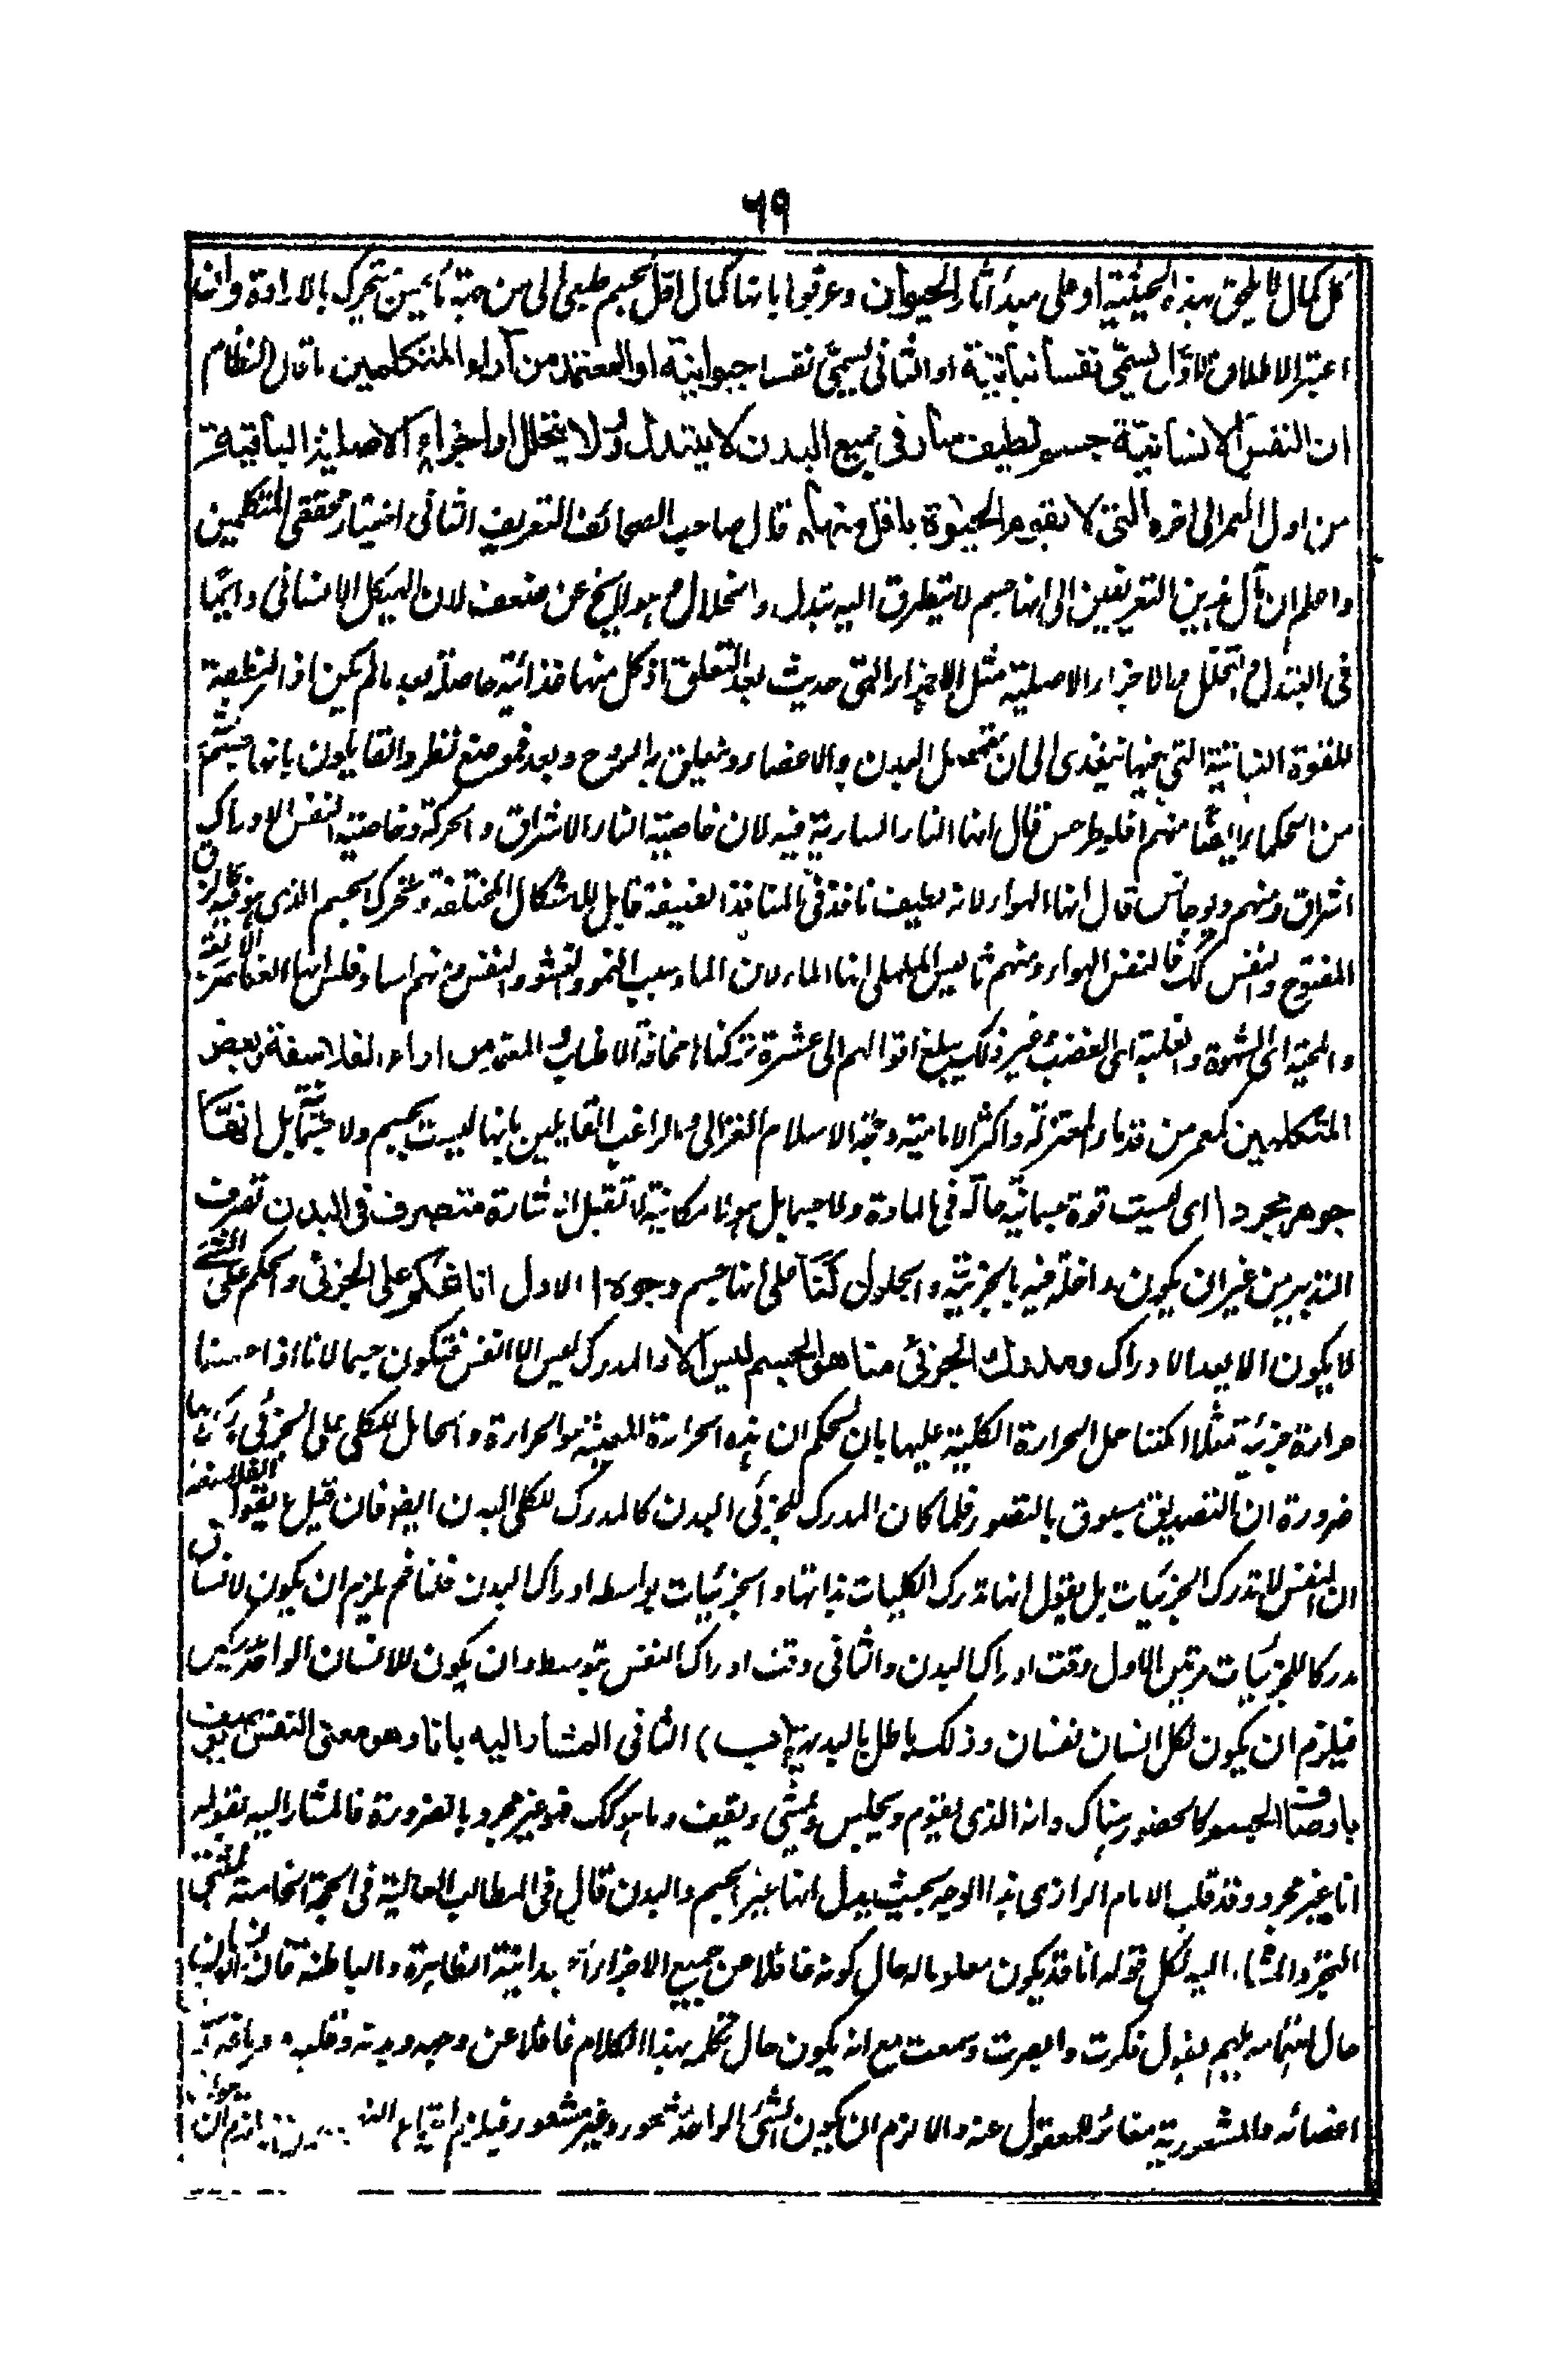 ٦٩
كل كمال يلحق بهذه الحيثية او على مبدأ آثار الحيوان وعرفوا بانها كمال اول لجسم طبعى الى من جهة ما يحس يتحرك بالارادة وان
اعتبر الاطلاق فالاول يسمى نفسا نباتية او الثانى يسمى نفسا حيوانية او المعتمد من آراء المتكلمين ما قال النظام
ان النفس الانسانية جسم لطيف سار فى جميع البدن لا يتبدل ولا يتحلل او اجزاء الاصلية الباقية
من اول العمر الى اخره التى لا يقوم الحيوة باقل منها قال صاحب الصحائف التعريف الثانى اختيار محققى المتكلمين
واعلم ان مآل هذين التعريفين الى انها جسم لا يتطرق اليه تبدل وانحلال هو لا يخ عن ضعف لان الهيكل الانسانى دائما
فى التبدل والتحلل والاجزاء الاصلية مثل الاجزاء التى حدثت بعد التعلق اذ كل منها غذائية حاصلة بعد ما لم يكن اذ النطفة
للقوة النباتية التى فيها تتغذى الى ان تتحصل البدن والاعضاء وتتعلق به الروح وبعد فموضع نظر والقايلون بانها جسم
من الحكماء ايضا منهم افليطرخس قال انها النار السارية فيه لان خاصية النار الاشراق والحركة وخاصية النفس الادراك
اشراق ومنهم ديوجانس قال انها الهواء لانه لطيف نافذ فى المنافذ الضيقة قابل للاشكال المختلفة ويحرك الجسم الذى هو فيه كالزق
المفتوح والنفس كك فالنفس الهواء ومنهم ثاليس الملطى انها الماء لان الماء سبب النمو والنشو والنفس ومنهم انباذقلس انها العناصر الاربعة
والمحبة اى الشهوة والغلبة اى الغضب وغير ذلك يبلغ اقوالهم الى عشرة تركناها مخافة الاطناب والمعتمد من اراء الفلاسفة وبعض
المتكلمين كمعمر من قدماء المعتزلة واكثر الامامية وحجة الاسلام الغزالى والراغب القايلين بانها ليست بجسم ولا جسمانية بل انها
جوهر مجرد اى ليست قوة جسمانية حالة فى المادة ولا جسما بل هو لا مكانية لا تقبل اشارة متصرف فى البدن تصرف
التدبير من غير ان يكون داخلة فيه بالجزئية والحلول لنا على انها جسم وجوه ا الاول انا نحكم على الجزئى والحكم على الشئ
لا يكون الا بعد الادراك ومدرك الجزئى منا هو الجسم ليس الا والمدرك ليس الا النفس فتكون جسما لانا اذا احسسنا
حرارة جزئية مثلا امكننا حمل الحرارة الكلية عليها بان نحكم ان هذه الحرارة المعينة هو الحرارة والحامل للكلى على الجزئى
ضرورة ان التصديق مسبوق بالتصور فلما كان المدرك للجزئى البدن كالمدرك للكلى البدن ايضا فان قيل لا يقول الفلاسفة
ان النفس لا تدرك الجزئيات بل يقول انها تدرك الكليات بذاتها والجزئيات بواسطة ادراك البدن قلنا فح يلزم ان يكون الانسان
مدركا للجزئيات مرتين الاول وقت ادراك البدن والثانى وقت ادراك النفس بتوسطه وان يكون للانسان الواحد مدركين
فيلزم ان يكون لكل انسان نفسان وذلك باطل بالبديهة (ب) الثانى المشار اليه بانا وهو معنى النفس يتصف
باوصاف الجسم كالحضور هناك وانه الذى يقوم ويجلس ويمشى ويقف وما هو كك فهو غير مجرد بالضرورة فالمشار اليه بقوله
انا غير مجرد وقد قلب الامام الرازى هذا الوجه بحيث يدل انها غير الجسم والبدن قال فى المطالب العالية فى الحجة الخامسة
المشار اليه لكل قوله انا قد يكون معلوما له حال كونه غافلا عن جميع الاجزاء البدنية الظاهرة والباطنة فان الانسان
حال اهتمامه بمهم يقول فكرت وابصرت وسمعت مع انه يكون حال تكلمه بهذا الكلام غافلا عن وجهه ويده وقلبه ودماغه
اعضائه والمشعور به مغائر للمعقول عنه والا لزم ان يكون الشئ الواحد مشعور وغير مشعور فيلزم اجتماع